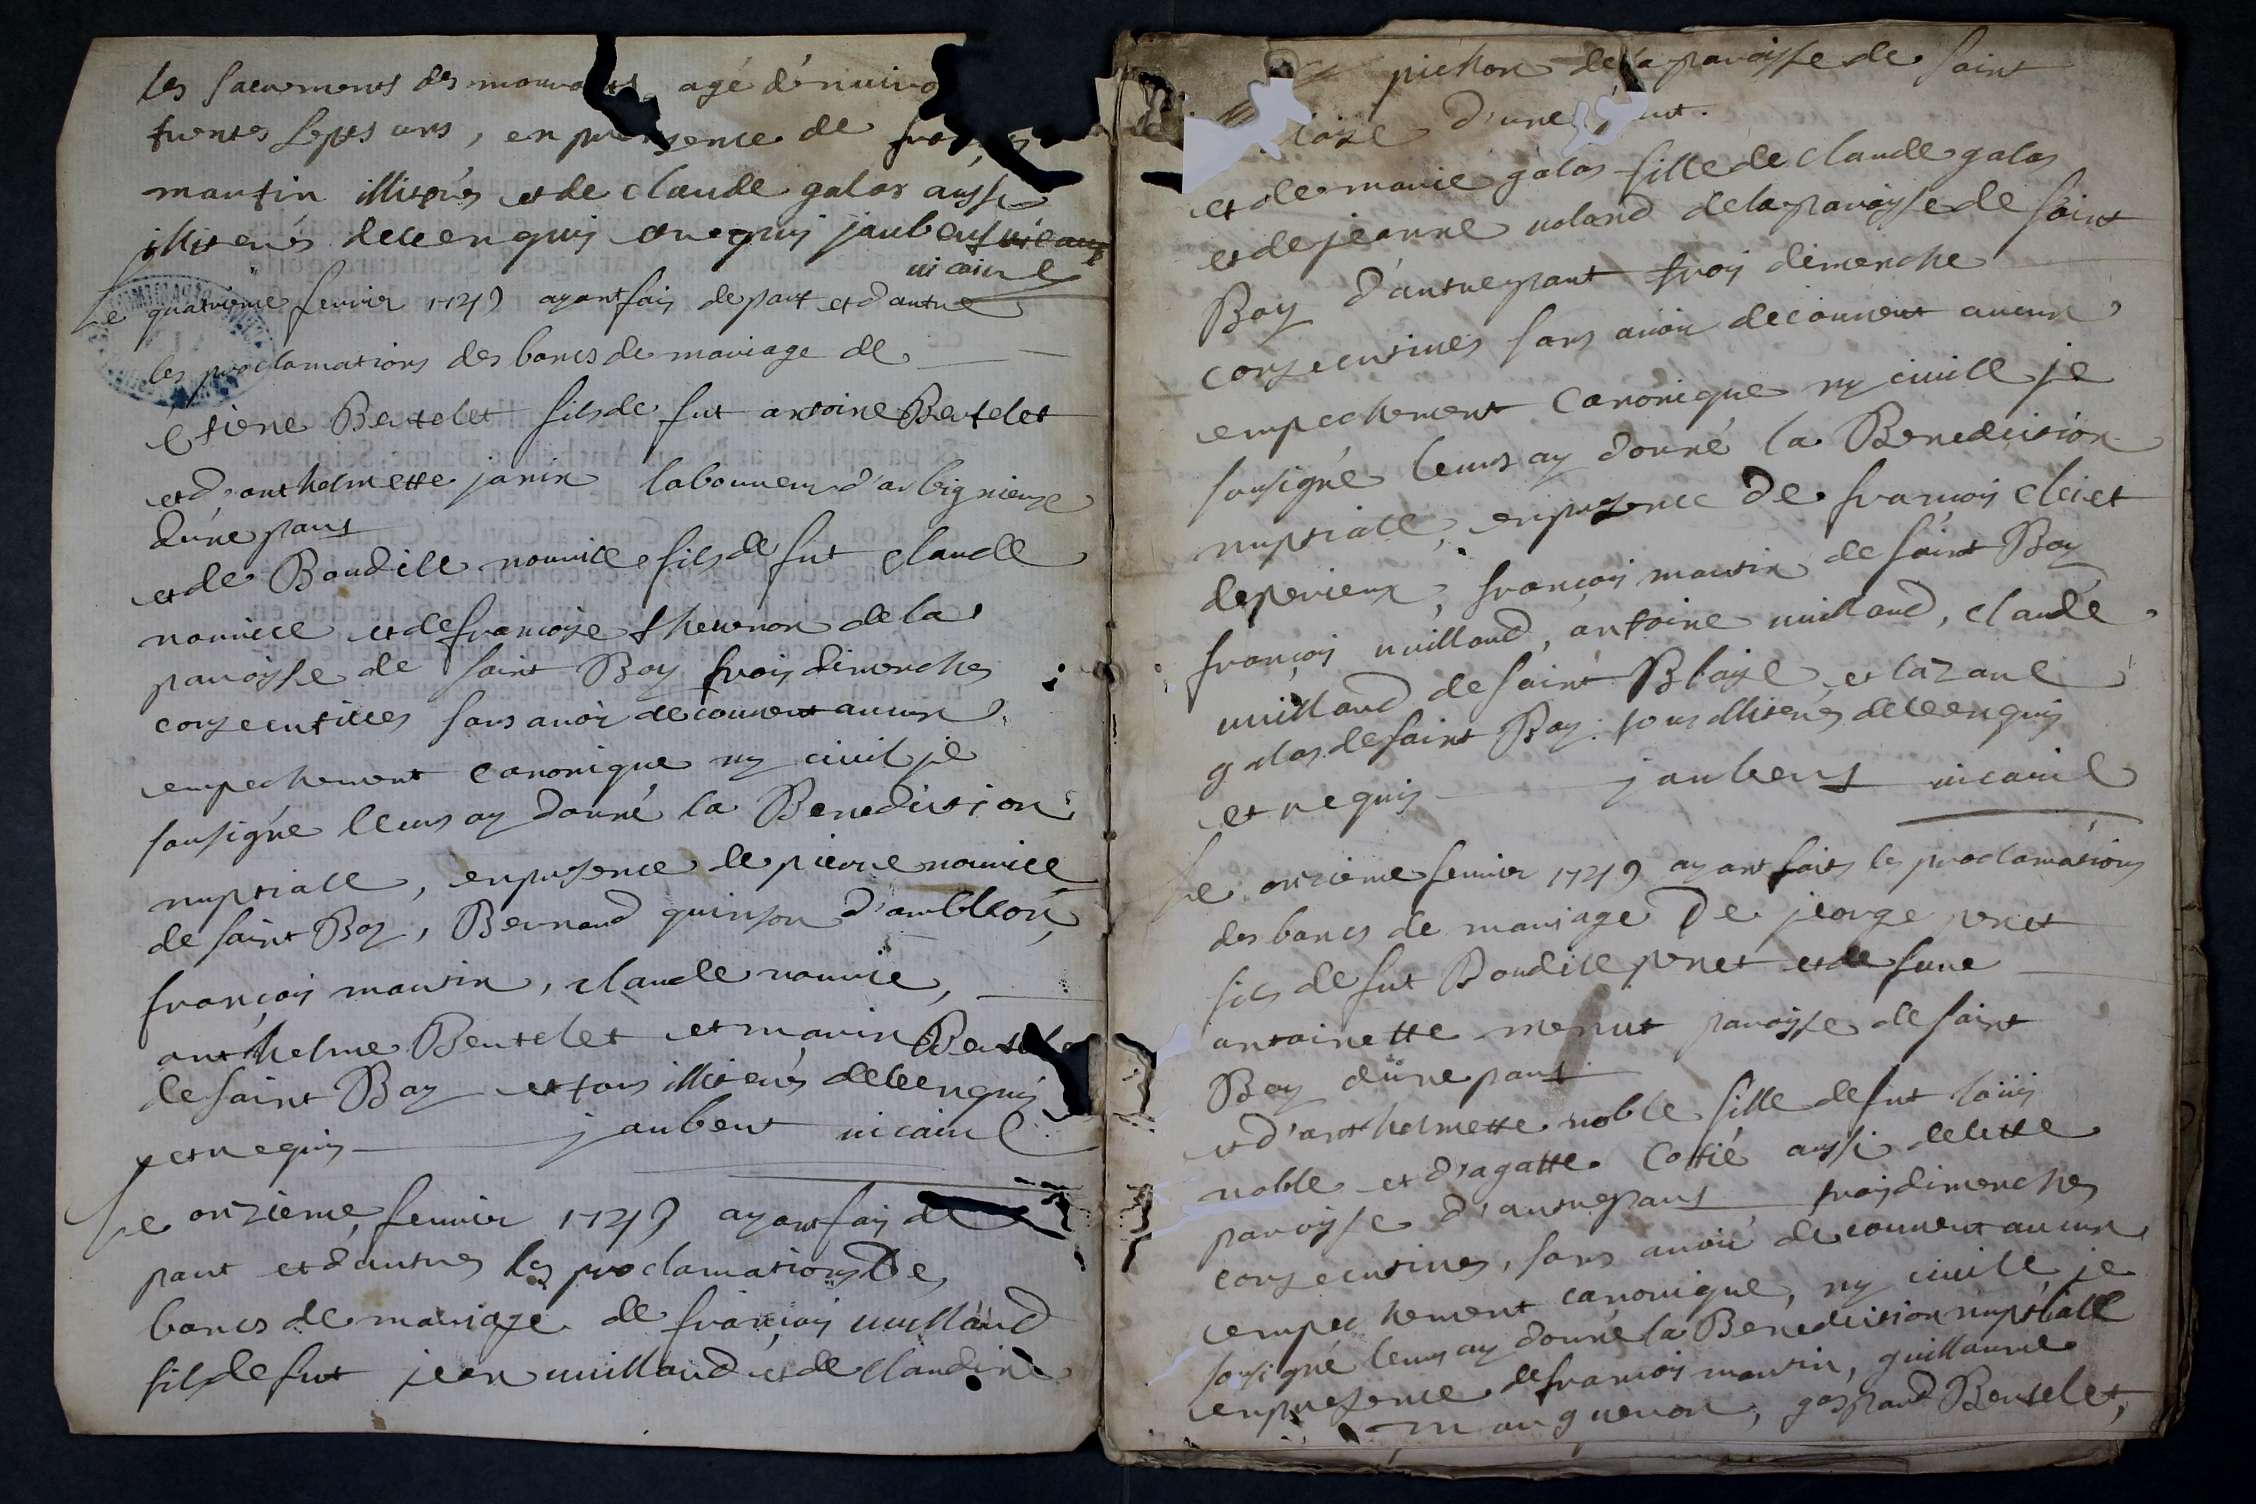 les sacrements des mourants agé d'enuiro
trentes septs ans, en presence de françois
martin illiterés et de claude galas aussi
illiterés de ce enquis et requis jaubert vicaire
vicaire
Le quatrieme feurier 1749 ayant fais de part et d'autre
les proclamations des bancs de mariage de
Etiene Bertelet fils de fut antoine Bertelet
et d'anthelmette janin laboureur d'arbignieux
d'une part
et de Baudille nourice fils de fut claude
nourice et de françoise theuenon de la
paroisse de saint Boy trois dimenches
consecutiues sans auoir decouuert aucun
empechement canonique ny ciuil je
sousigné leurs ay donné la Benediction
nuptiale, en presence de pierre nourice
de saint Boy, Bernard quinson d'ambleon,
françois martin, claude nourice,
anthelme Bertelet et marin Bertele
de saint Boy et tous illiterés de ce enquis
et requis jaubert uicaire
Le onzieme feurier 1749 ayant fais de
part et d'autres les proclamations De
bancs de mariage de françois uuillaud
fils de fut jean uuillaud et de claudine
pichon de la paroisse de saint
Blaise d'une part.
et de marie galas fille de claude galas
et de jeanne uoland de la paroisse de saint
Boy d'autre part trois dimenche
consecutiues sans auoir decouuert aucun
empechement Canonique ny ciuille je
sousigné leurs ay donné la Benediction
nuptialle, en presence De françois cliet
de perieux, françois martin de saint Boy
françois uuillaud, antoine uuillaud, claude
uuillaud de saint Blaise et lazare
galas de saint Boy. tous illiterés de ce enquis
et requis jaubert uicaire
Le onzieme feurier 1749 ayant faits les proclamations
des bancs de mariage De jeorge penet
fils de fut Baudille penet et de fune
antoinette menut paroisse de saint
Boy d'une part
et d'anthelmette noble fille de fut loüis
noble et d'agatte Costié aussi de cette
paroisse d'autre part trois dimenches
consecutiues, sans auoir decouuert aucun
empechement canonique, ny ciuille je
sousigné leurs ay donné la Benediction nuptialle
en presence de francois martin, guillaume
marguenon, gaspard Bertelet,